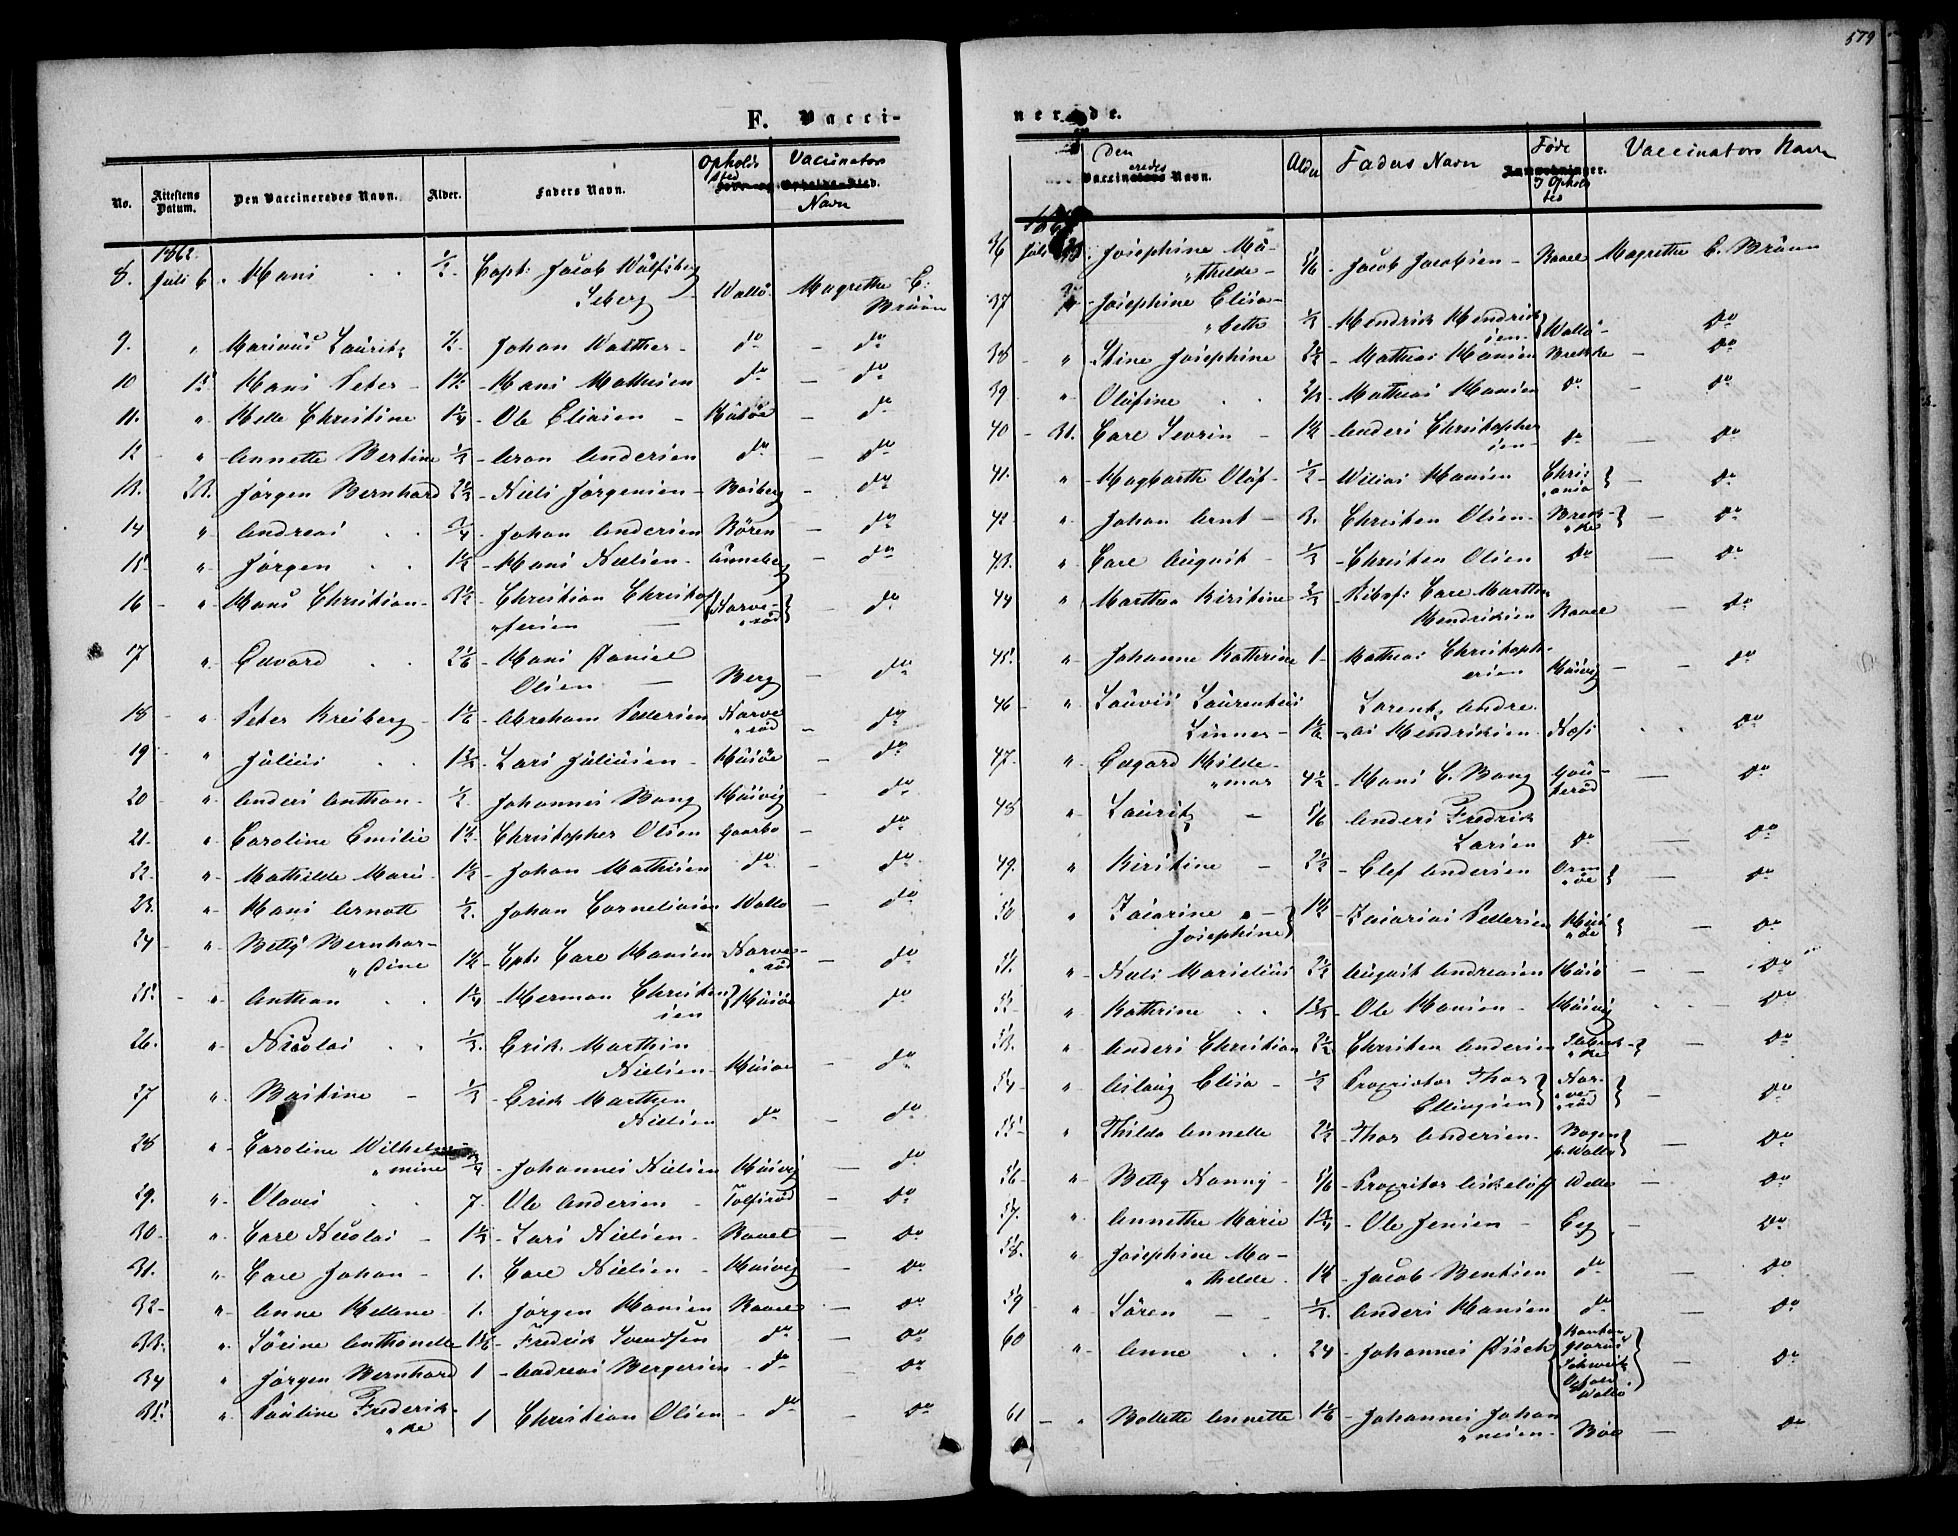 579
F. Vacci-
nerede.
No.
Attestens Datum.
Den Vaccineredes Navn.
Alder.
Faders Navn.
Opholds sted
Vaccinators Navn
1862.
8. Juli 6. Hans ½ Capt: Jacob Wülfsberg
Seberg Vallö Magrethe C:
Bruun
9. " Marius Lauritz ½ Johan Walther do do
10 15 Hans Peter 1½ Hans Mathisen do do
11. " Helle Christine 1¼ Ole Eliasen Husöe do
12 " Annette Bertine ½ Aron Andersen do do
13. 23. Jørgen Bernhard 2½ Niels Jørgensen Basberg do
14 " Andreas ¾ Johan Andersen Rören do
15 " Jørgen 1½ Hans Nielsen Unneberg do
16 " Hans Christian 3½ Christian Christof- Narve- do
fersen röd
17 " Edvard 2⅙ Hans Daniel
Olsen Berg do
18 " Peter Kreiberg 1⅙ Abraham Pedersen Narve do
röd
19 " Julius 1⅔ Lars Juliusen Husöe do
20 " Anders Anthon ½ Johannes Bang Husvig do
21. " Caroline Emilie 1½ Christopher Olsen Gaarbo do
22. " Mathilde Marie 1½ Johan Mathisen do do
23. " Hans Arnott ½ Johan Corneliasen Vallö do
24 " Betty Bernhar-
dine 1½ Cpt: Carl Hansen Narve- do
röd
25 " Anthon 1¼ Herman Christen Husöe do
sen
26. " Nicolai ⅓ Erik Marthin
Nielsen Husöe do
27 " Bastine ⅓ Erich Marthin
Nielsen do do
28 " Caroline Wilhel
mine ¾ Johannes Nielsen Husvig do
29. " Olavis 7. Ole Andersen Tolfsröd do
30 " Carl Nicolai 1½ Lars Nielsen Ravel do
31. " Carl Johan 1. Carl Nielsen Husvig do
32 " Anne Helene 1. Jørgen Hansen Ravel do
33. " Sörine Anthonette 1⅙ Fredrik Svendsen do do
34 " Jørgen Bernhard 1 Andreas Bergersen do do
35 " Pauline Frederik-
ke 1 Christian Olsen do do
Den Vaccineredes Navn.
Alder
Faders Navn
Føde
Ophold
Vaccinators Navn
36 Juli Josephine Ma-
thilde 5/6 Jacob Jacobsen Ravel Magrethe C. Bruun
37 " Josephine Elisa-
beth ½ Hendrik Hendrik
sen Vallö do
38 " Stine Josephine 2½ Mathias Hansen Brekke do
39 " Olufine ⅔ Mathias Hansen do do
40 31. Carl Sevrin 1½ Anders Christopher
sen do do
41. " Hagbarth Oluf ½ Wilias Hansen Chris- do
ania
42 " Johan Arnt 3. Christen Olsen Brek- do
ke
43. " Carl August ½ Christen Olsen do do
44 " Marthea Kirstine ⅔ Carl Marthin
Hendriksen Ravel do
45. " Johanne Kathrine 1 Mathias Christoph-
ersen Husvig do
46 " Lauvis Laurentius Larentz Andre
Linner 1⅙ as Hendriksen Næs do
47. " Edgard Hilde
mar 4½ Hans C. Bang Gou- do
seröd
48 " Lauritz 5/6 Anders Fredrik
Larsen do do
49. " Kirstine 2½ Elef Andersen Orm do
öe
50 " Zacarine 1½ Zacarias Pedersen Hus do
Josephine öe
51. " Niels Marselius 2½ August Andreasen Husö do
52 " Kathrine 1⅔ Ole Hansen Husvig do
53. " Anders Christian 2½ Christen Andersen do
54 " Aslaug Elisa ⅓ Proprietor Thor Nar- do
Ellingsen ve
röd
55 " Thilda Annette 2½ Thor Andersen Bogen do
p. Vallö
56 " Betty Nanny 5/6 Propritor Askeloff Velle do
57. " Annethe Marie 1¾ Ole Jensen Eeg do
58. " Josephine Ma-
thilde 1½ Jacob Bentsen do do
59 " Sören ⅓ Anders Hansen do do
60 " Anne 24 Johannes Disch Kanton do
Glarus
Schweitz
Ophold
Vallö
61 " Bollette Annette 1⅙ Johannes Johan
nesen Böe do